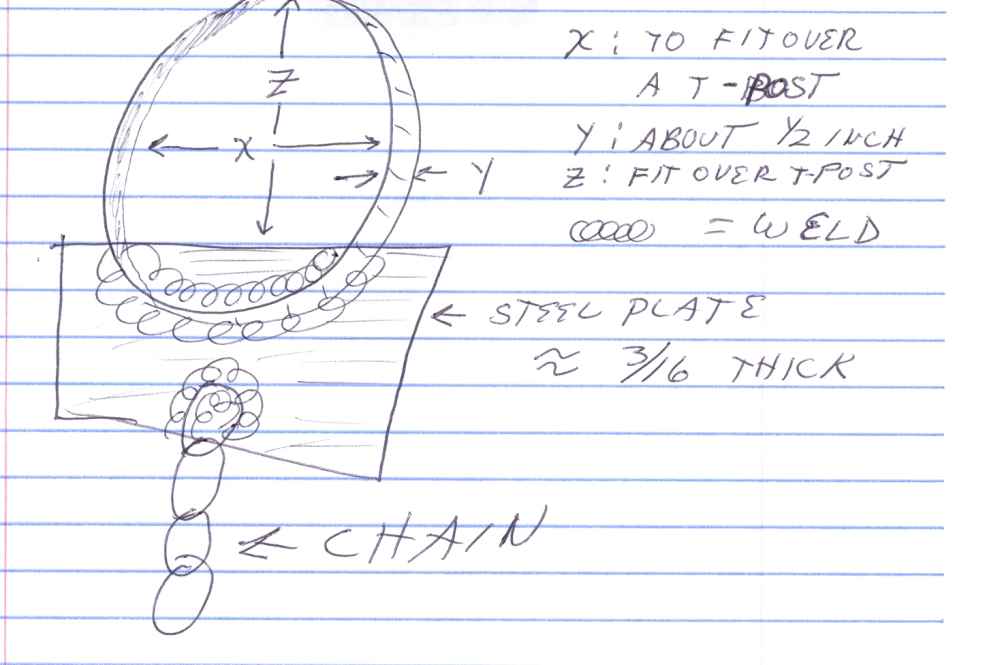 X : TO FIT OVER
A T-POST
Z
X
Y : ABOUT 1/2 INCH
← Y
Z : FIT OVER T-POST
= WELD
← STEEL PLATE
≈ 3/16 THICK
← CHAIN